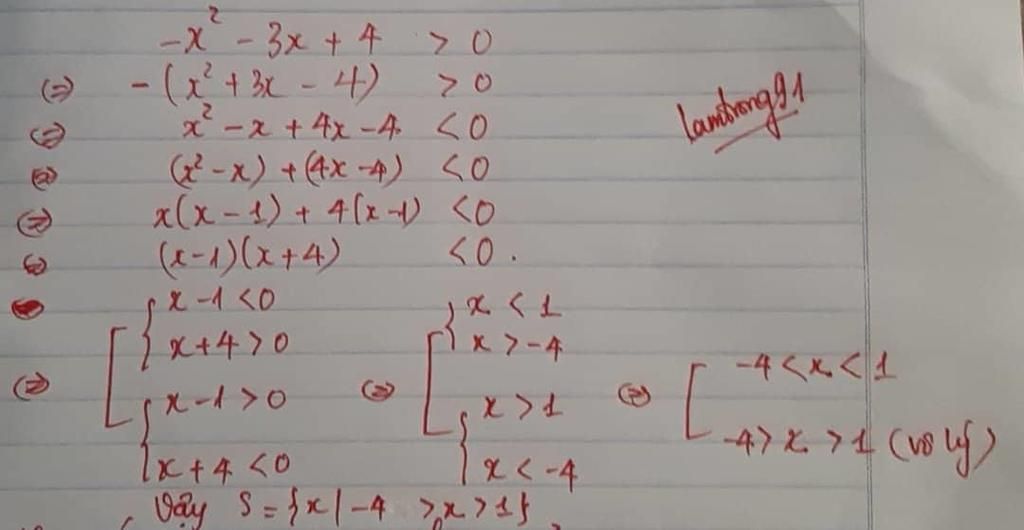 -x² - 3x + 4 > 0
⇔ -(x² + 3x - 4) > 0
⇔ x² - x + 4x - 4 < 0
⇔ (x² - x) + (4x - 4) < 0
⇔ x(x - 1) + 4(x - 1) < 0
⇔ (x - 1)(x + 4) < 0.
⇔ [ { x - 1 < 0 ; x + 4 > 0 ; { x - 1 > 0 ; x + 4 < 0 ⇔ [ { x < 1 ; x > -4 ; { x > 1 ; x < -4 ⇔ [ -4 < x < 1 ; -4 > x > 1 (vô lý)
Vậy S = {x | -4 > x > 1}
lamtrong91